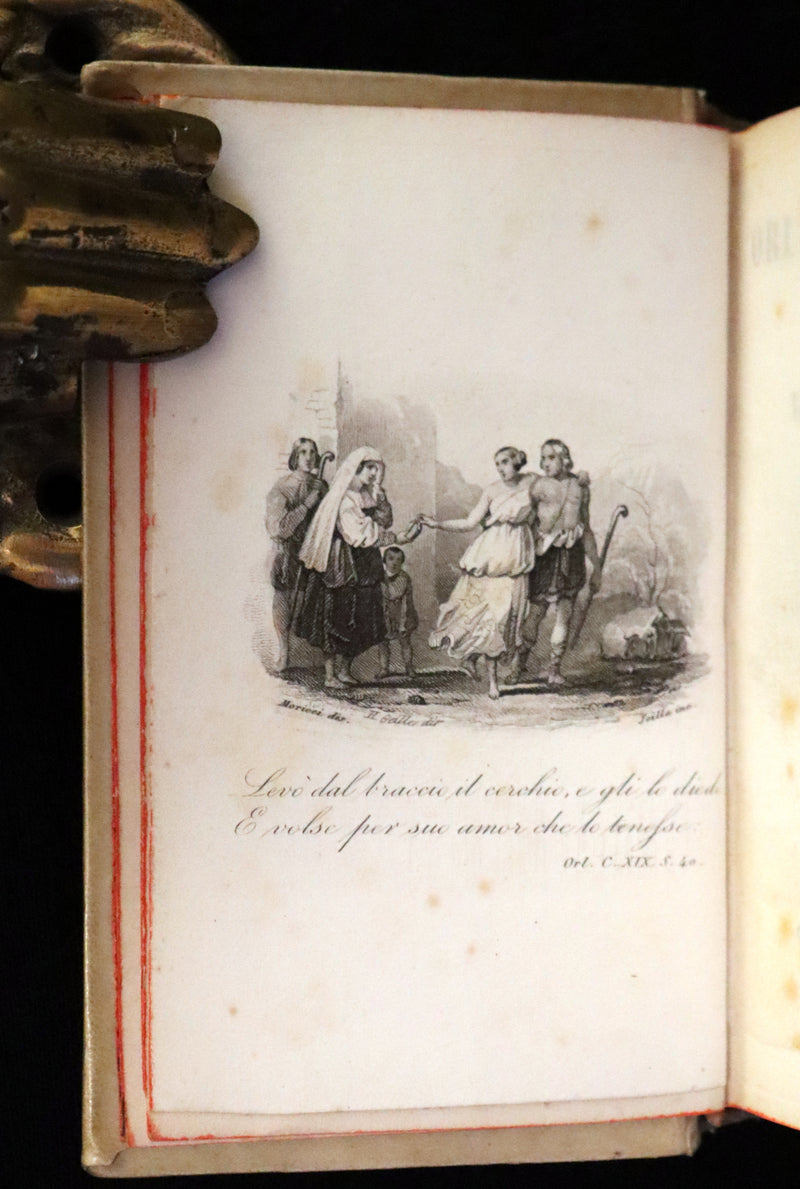 ORL
Moricci dis. G. Galli dir.
Levò dal braccio il cerchio, e gli lo diede
E volse per suo amor che lo tenesse:
Orl. C. XIX. S. 40.